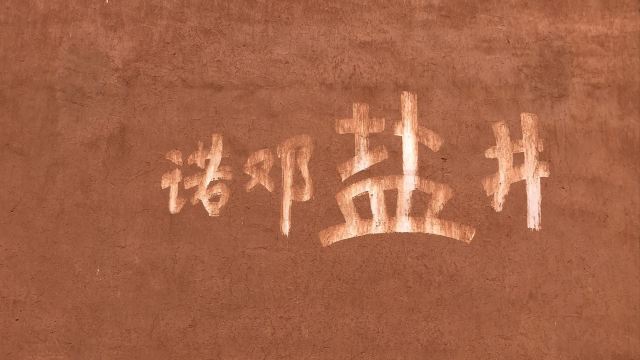 诺邓盐井